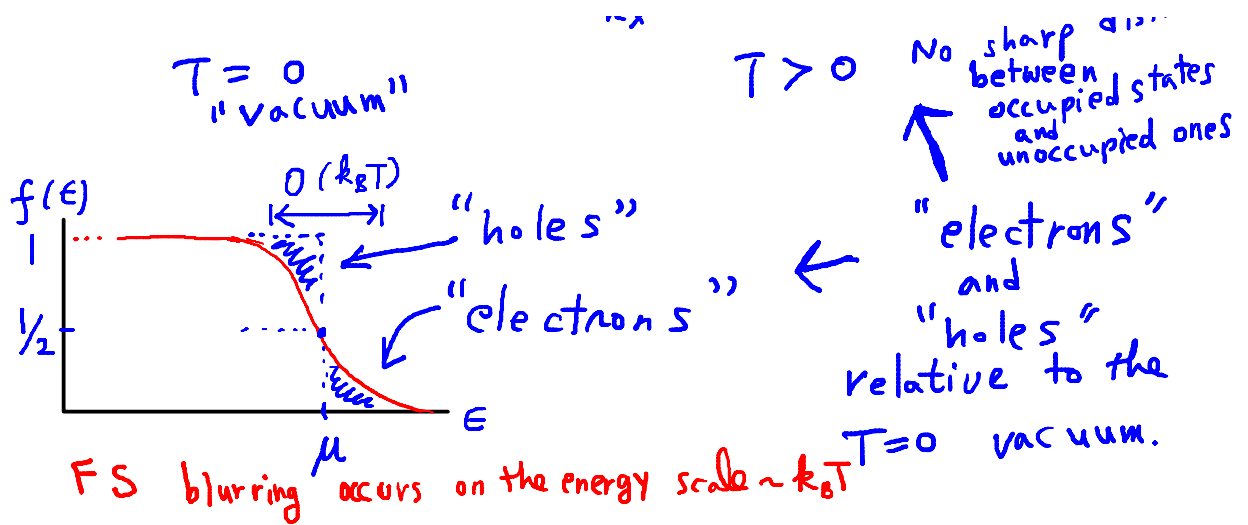 T = 0
"vacuum"
T > 0
No sharp
between
occupied states
and
unoccupied ones
f(ϵ)
O(k_BT)
1
"holes"
"electrons"
1/2
ϵ
μ
"electrons"
and
"holes"
relative to the
T=0 vacuum.
FS blurring occurs on the energy scale ~ k_BT